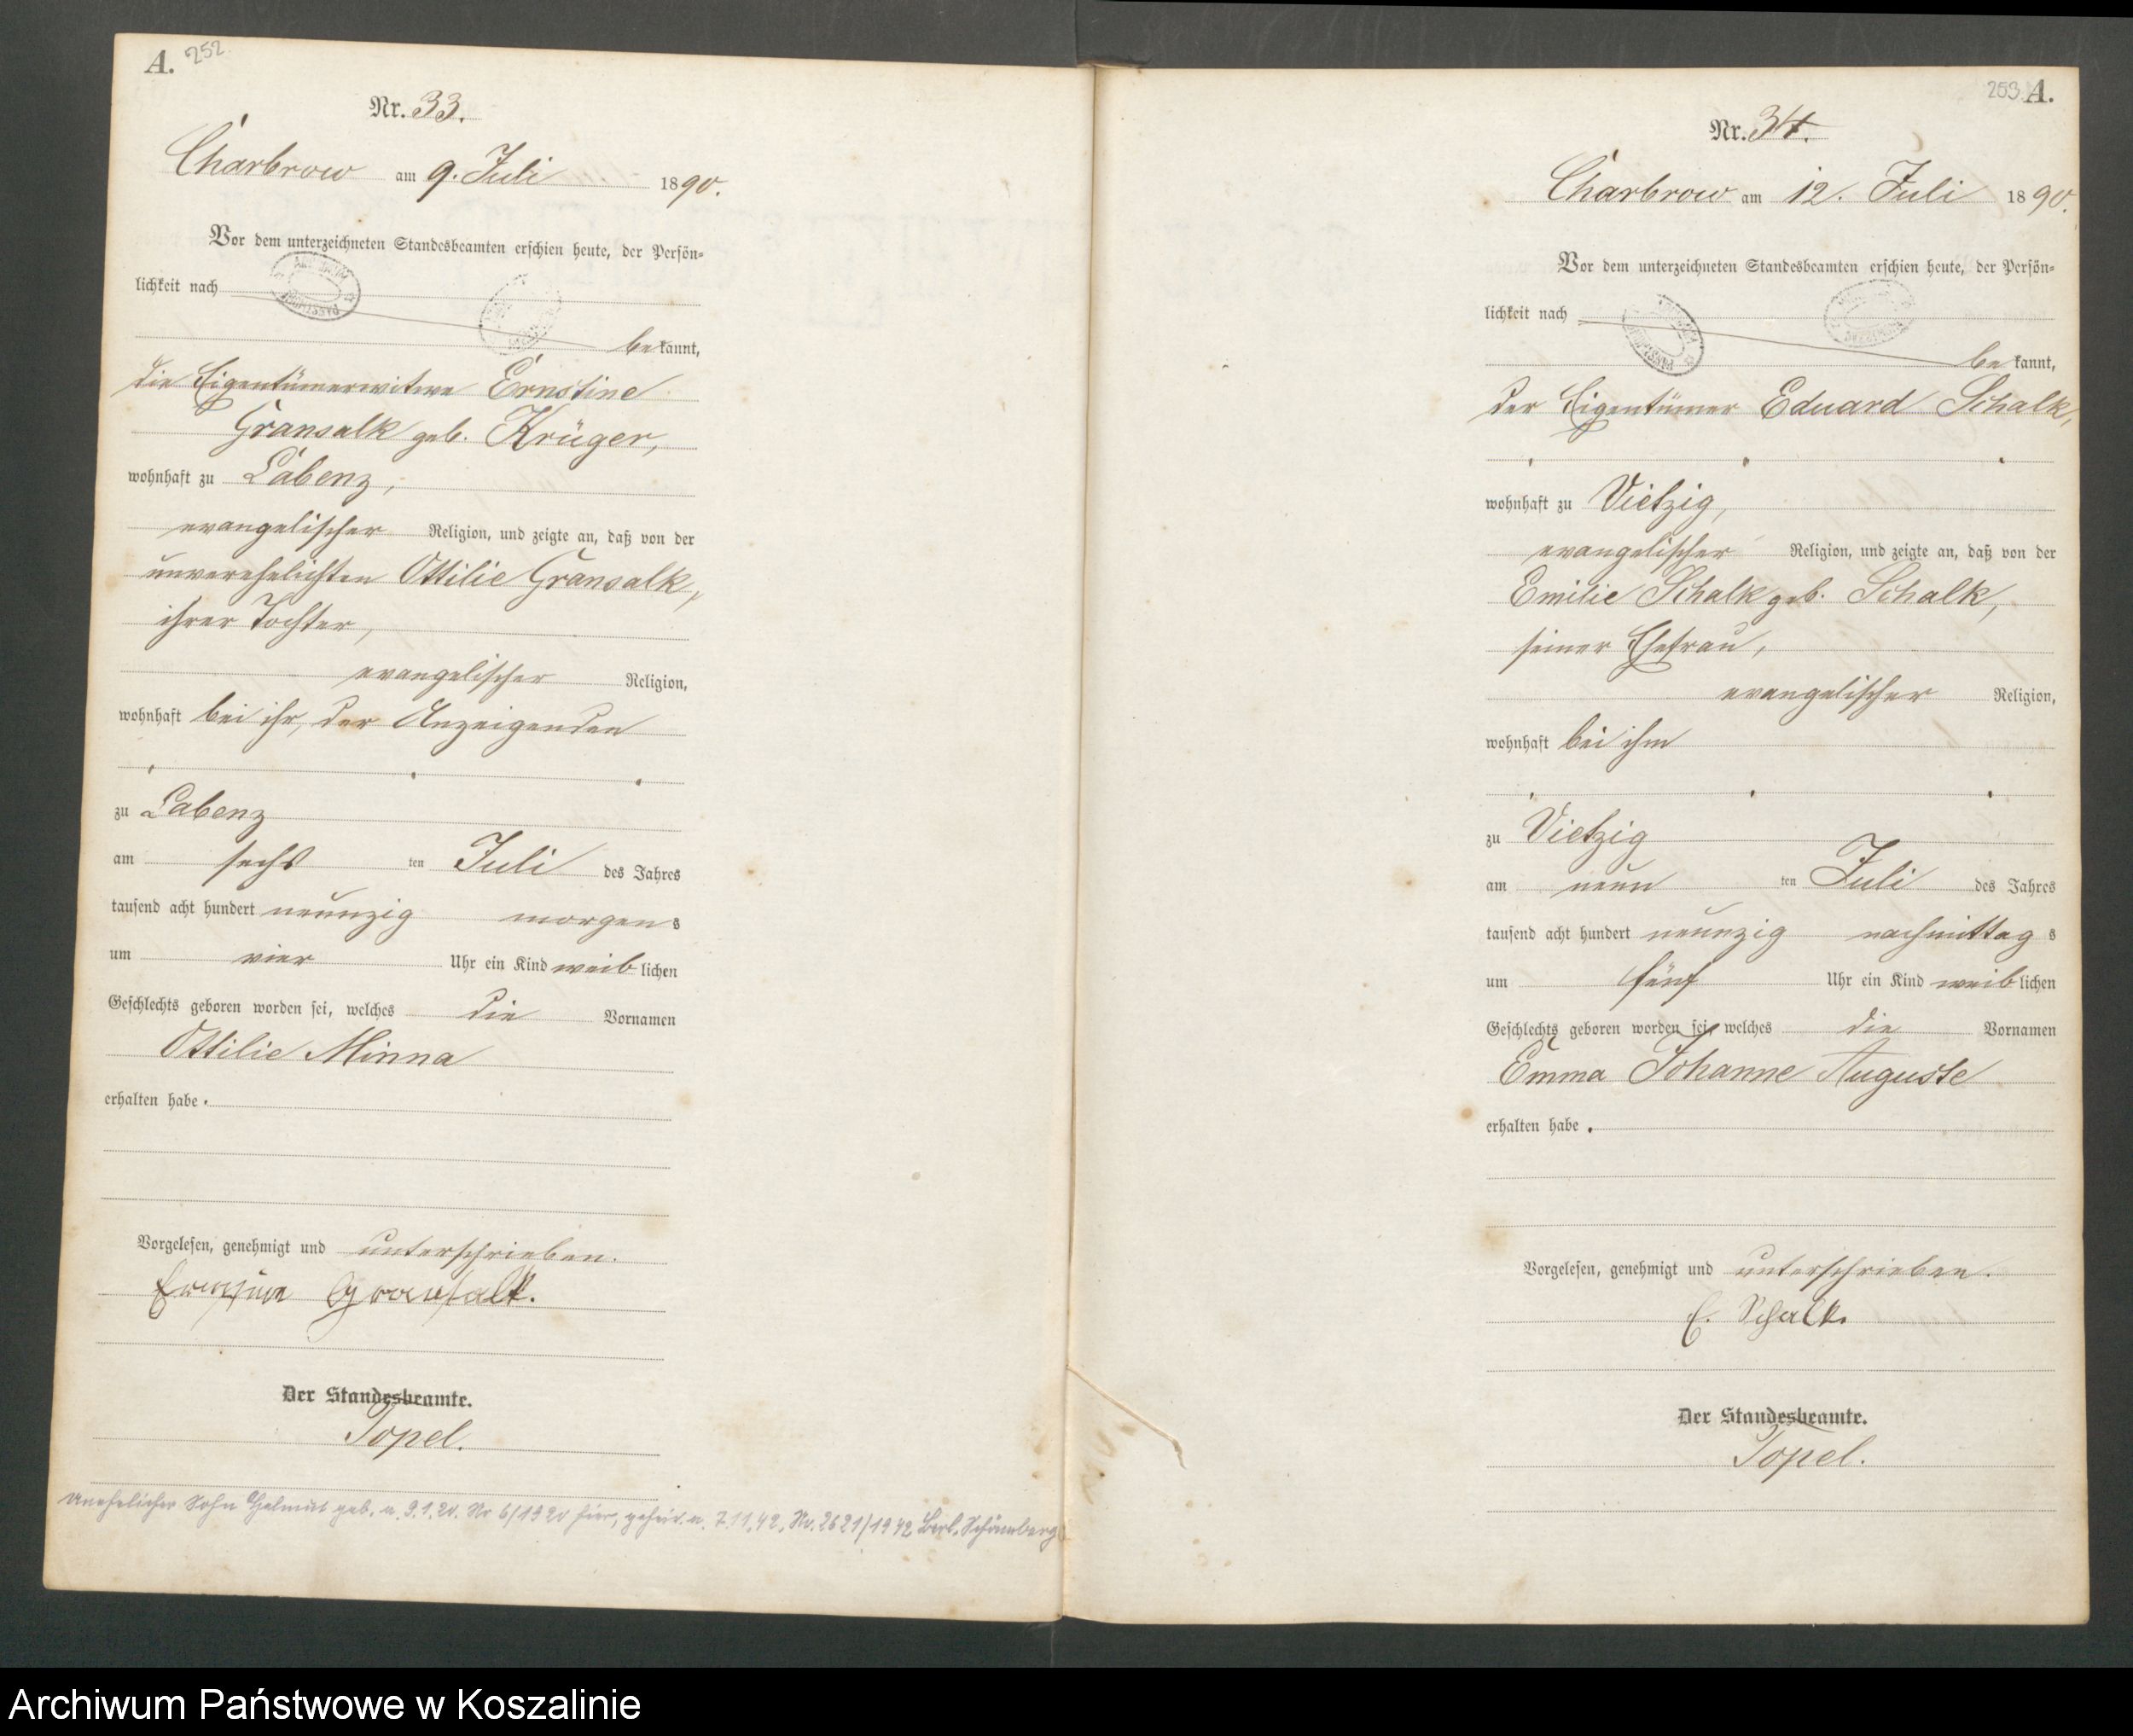 A. 252.
Nr. 33.
Charbrow am 9. Juli 1890.
Vor dem unterzeichneten Standesbeamten erschien heute, der Persön-
lichkeit nach
bekannt,
die Eigentümerwitwe Ernstine
Gransalk geb. Krüger,
wohnhaft zu Labenz,
evangelischer Religion, und zeigte an, daß von der
unverehelichten Ottilie Gransalk,
ihrer Tochter,
evangelischer Religion,
wohnhaft bei ihr, der Anzeigenden
zu Labenz
am sechsten Juli des Jahres
tausend acht hundert neunzig morgens
um vier Uhr ein Kind weiblichen
Geschlechts geboren worden sei, welches die Vornamen
Ottilie Minna
erhalten habe.
Vorgelesen, genehmigt und unterschrieben.
Ernstine Gransalk.
Der Standesbeamte.
Topel.
Unehelicher Sohn Helmut geb. a. 9.1.20. Nr 6/1920 hier, geheir. a. 7.11.42. Nr. 2621/1942 Berl. Schöneberg
253 A.
Nr. 34.
Charbrow am 12. Juli 1890.
Vor dem unterzeichneten Standesbeamten erschien heute, der Persön-
lichkeit nach
bekannt,
der Eigentümer Eduard Schalk,
wohnhaft zu Vietzig,
evangelischer Religion, und zeigte an, daß von der
Emilie Schalk geb. Schalk,
seiner Ehefrau,
evangelischer Religion,
wohnhaft bei ihm
zu Vietzig
am neunten Juli des Jahres
tausend acht hundert neunzig nachmittags
um fünf Uhr ein Kind weiblichen
Geschlechts geboren worden sei, welches die Vornamen
Emma Johanne Auguste
erhalten habe.
Vorgelesen, genehmigt und unterschrieben.
E. Schalk.
Der Standesbeamte.
Topel.
Archiwum Państwowe w Koszalinie